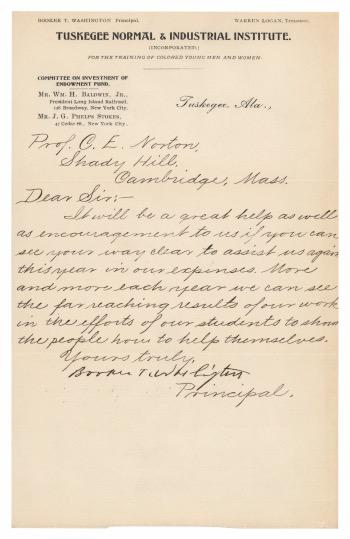 BOOKER T. WASHINGTON Principal. WARREN LOGAN, Treasurer.
TUSKEGEE NORMAL & INDUSTRIAL INSTITUTE.
(INCORPORATED)
FOR THE TRAINING OF COLORED YOUNG MEN AND WOMEN
COMMITTEE ON INVESTMENT OF
ENDOWMENT FUND.
MR. WM. H. BALDWIN, JR.,
President Long Island Railroad,
128 Broadway, New York City.
MR. J. G. PHELPS STOKES,
47 Cedar St., New York City.
Tuskegee, Ala.,
Prof. C. E. Norton,
Shady Hill,
Cambridge, Mass.
Dear Sir;-
It will be a great help as well
as encouragement to us if you can
see your way clear to assist us again
this year in our expenses. More
and more each year we can see
the far reaching results of our work
in the efforts of our students to show
the people how to help themselves.
Yours truly,
Booker T. Washington
Principal.